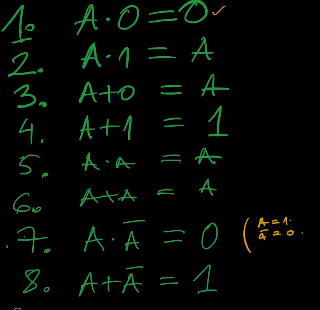 1. A·0 = 0 ✓
2. A·1 = A
3. A+0 = A
4. A+1 = 1
5. A·A = A
6. A+A = A
7. A·A̅ = 0 ( A=1. A̅=0.
8. A+A̅ = 1